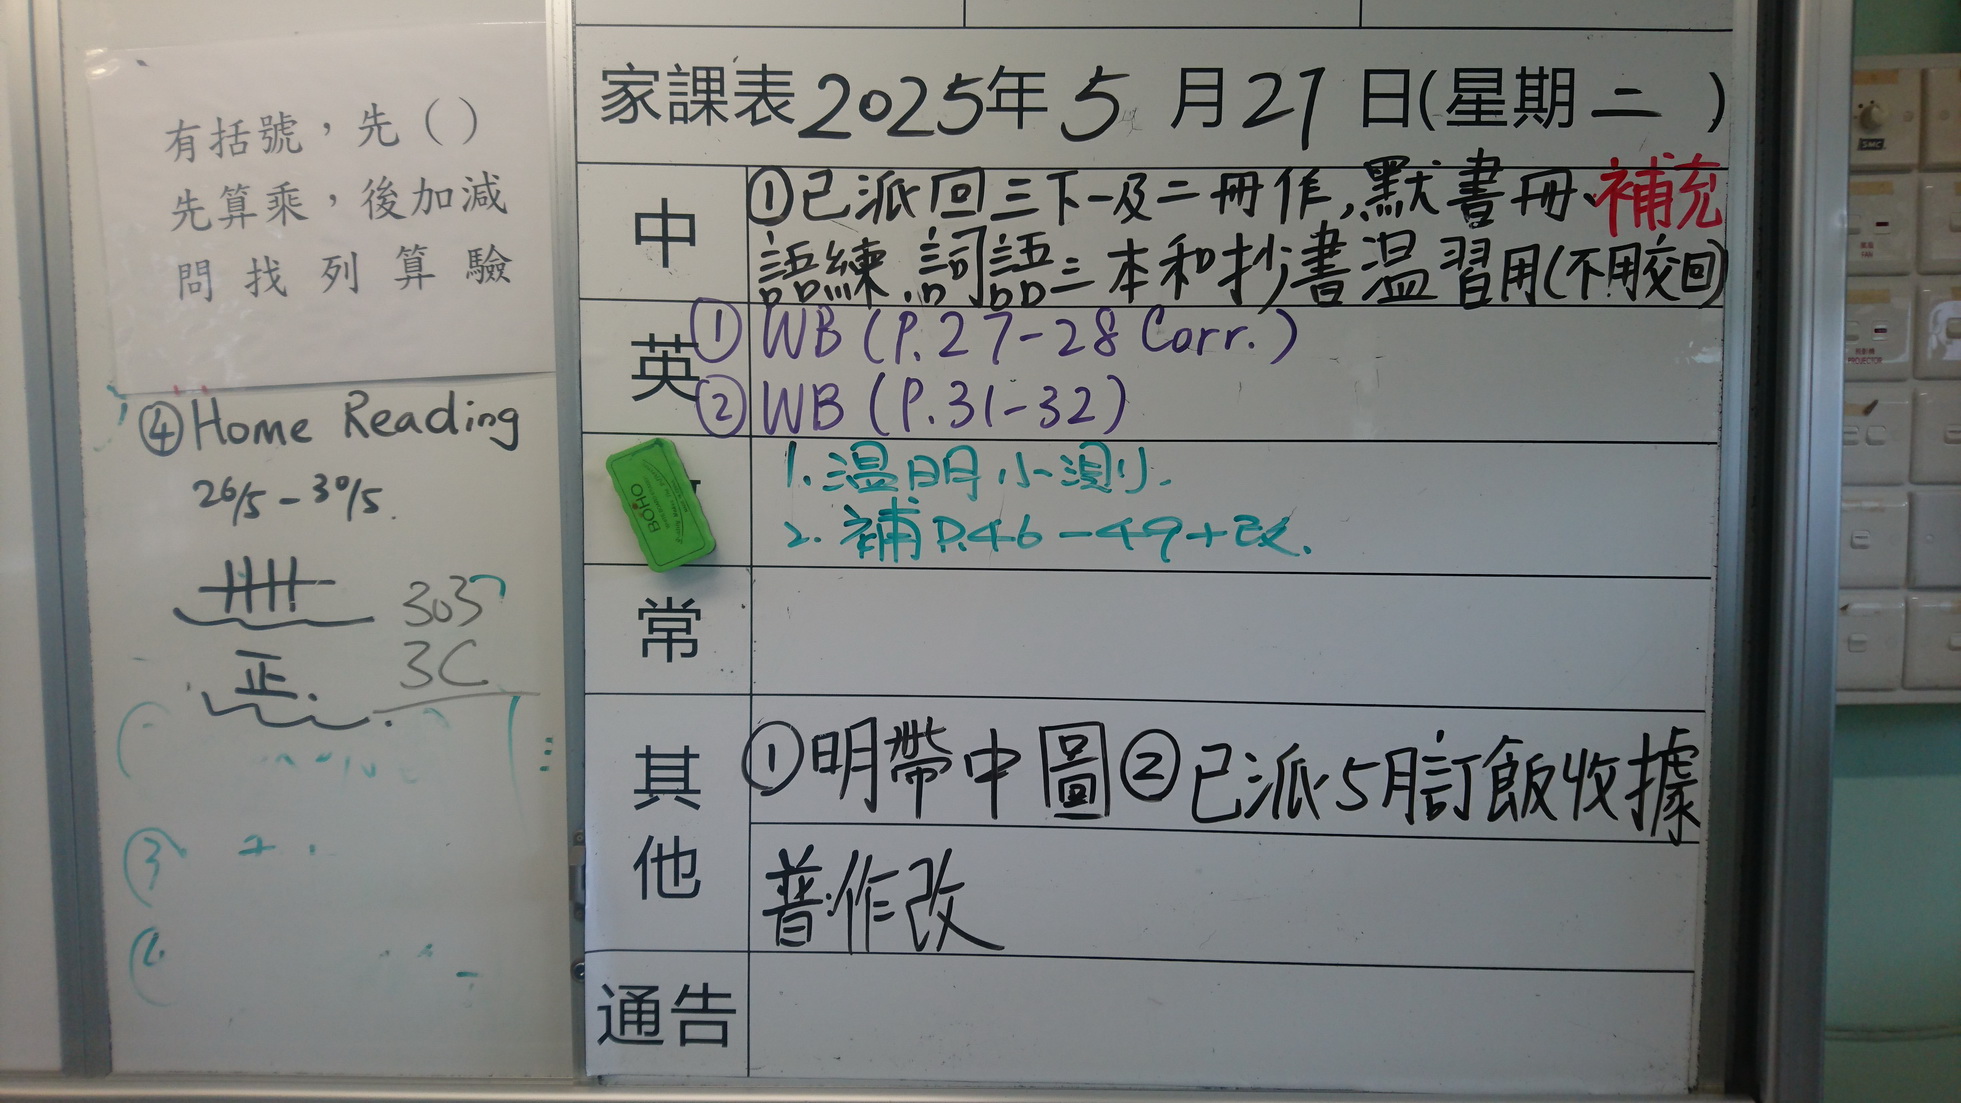 有括號，先（）
先算乘，後加減
問找列算驗
④Home Reading
26/5 - 30/5.
正.
303
3C
家課表2025年5月27日(星期二)
中
①已派回三下一及二冊作,默書冊、補充
語練.詞語三本和抄書溫習用(不用交回)
英
① WB (P.27-28 Corr.)
② WB (P.31-32)
1. 溫明小測.
2. 補P.46-49+改.
BOHO
常
其他
①明帶中圖②已派5月訂飯收據
普作改
通告
SMC
PROJECTOR